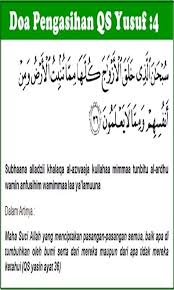 Doa Pengasihan QS Yusuf :4
سُبْحَٰنَ ٱلَّذِى خَلَقَ ٱلْأَزْوَٰجَ كُلَّهَا مِمَّا تُنۢبِتُ ٱلْأَرْضُ وَمِنْ
أَنفُسِهِمْ وَمِمَّا لَا يَعْلَمُونَ ﴿٣٦﴾
Subhaana alladzii khalaqa al-azwaaja kullahaa mimmaa tunbitu al-ardhu
wamin anfusihim wamimmaa laa ya'lamuuna
Dalam Artinya :
Maha Suci Allah yang menciptakan pasangan-pasangan semua, baik apa di
tumbuhkan oleh bumi serta dari mereka maupun dari apa tidak mereka
ketahui (QS yasin ayat 36)